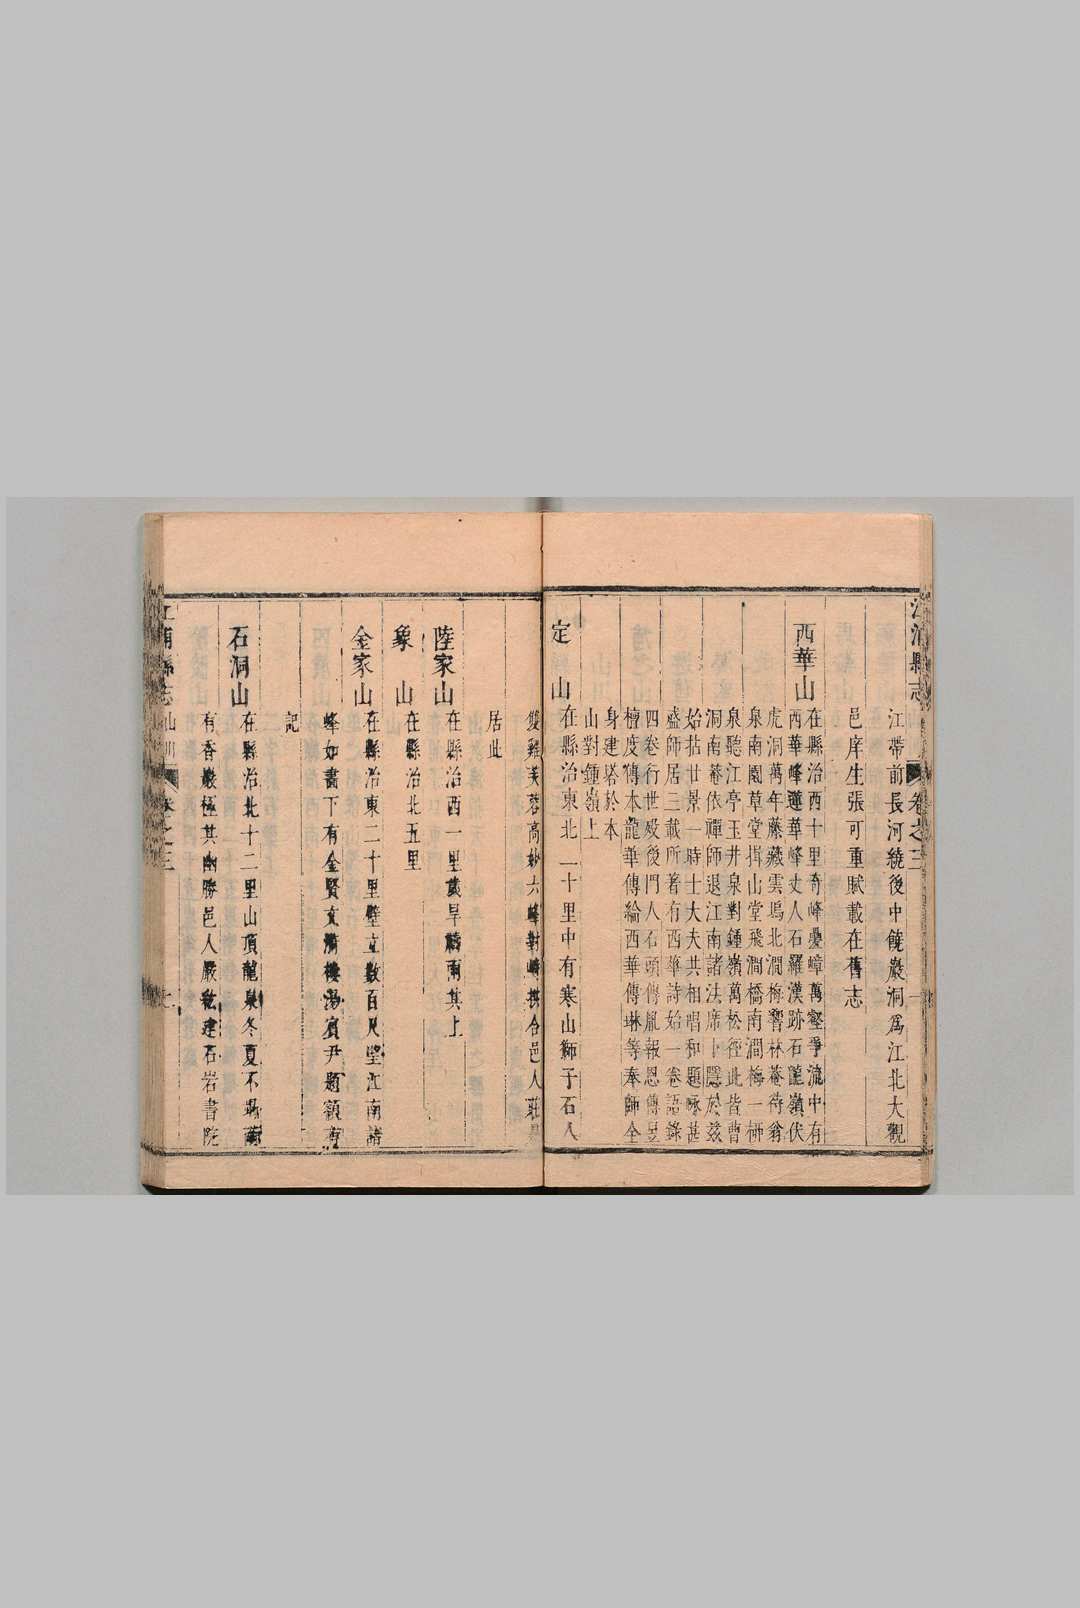 江浦縣志
卷之三
江帶前長河繞後中饒巖洞爲江北大觀
邑庠生張可重賦載在舊志
西華山
在縣治西十里奇峰疊嶂萬壑爭流中有
西華峰蓮華峰丈人石羅漢跡石龍嶺伏
虎洞萬年藤藏雲塢北澗梅響林菴待翁
泉南園草堂揖山堂飛澗橋南澗梅一栁
泉聽江亭玉井泉對鍾嶺萬松徑此皆曹
洞南菴依禪師退江南諸法席卜隱於茲
始拈廿景一時士大夫共相唱和題咏甚
盛師居三載所著有西華詩始一卷語錄
四卷行世歿後門人石頭傳胤報恩傳昱
檀度傳本龍華傳綸西華傳琳等奉師全
身建塔於本
山對鍾嶺上
定山
在縣治東北二十里中有寒山獅子石人
雙雞芙蓉高妙六峰對峙拱合邑人莊
居此
陸家山
在縣治西一里歲旱禱雨其上
象山
在縣治北五里
金家山
在縣治東二十里壁立數百尺望江南諸
峰如畫下有金賢文漪樓湯賓尹題額有
記
石洞山
在縣治北十二里山頂龍泉冬夏不涸
有香巖極其幽勝邑人嚴紘建石岩書院
江浦縣志
山川
卷之三
七